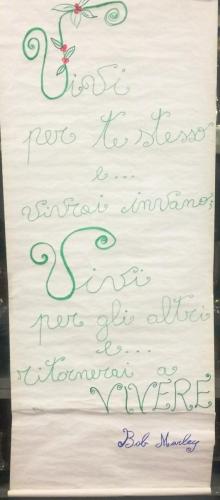 Vivi
per te stesso
e...
vivrai invano;
Vivi
per gli altri
e...
ritornerai a
VIVERE
Bob Marley